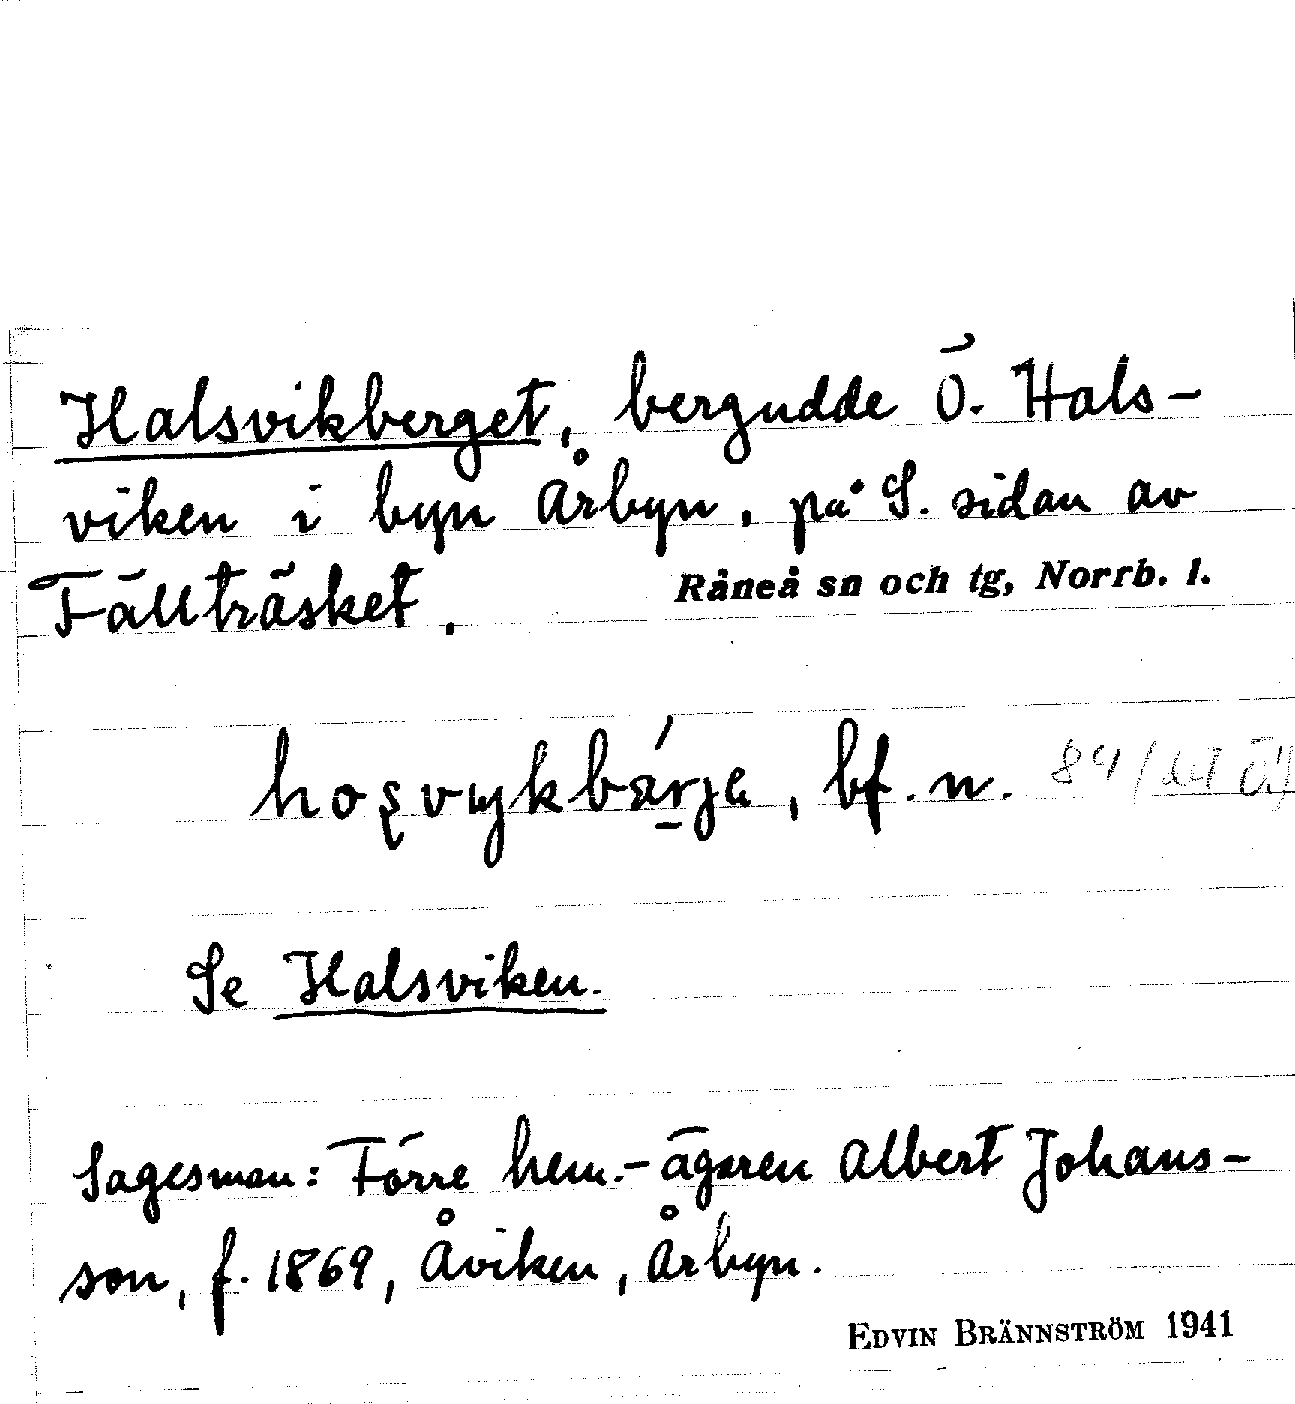 Halsvikberget, bergudde Ö. Hals-
viken i byn Årbyn, på S. sidan av
Fällträsket.
Råneå sn och tg, Norrb. l.
bf. n.
Se Halsviken.
Sagesman: Förre hem.-ägaren Albert Johans-
son, f. 1869, Åviken, Årbyn.
EDVIN BRÄNNSTRÖM 1941